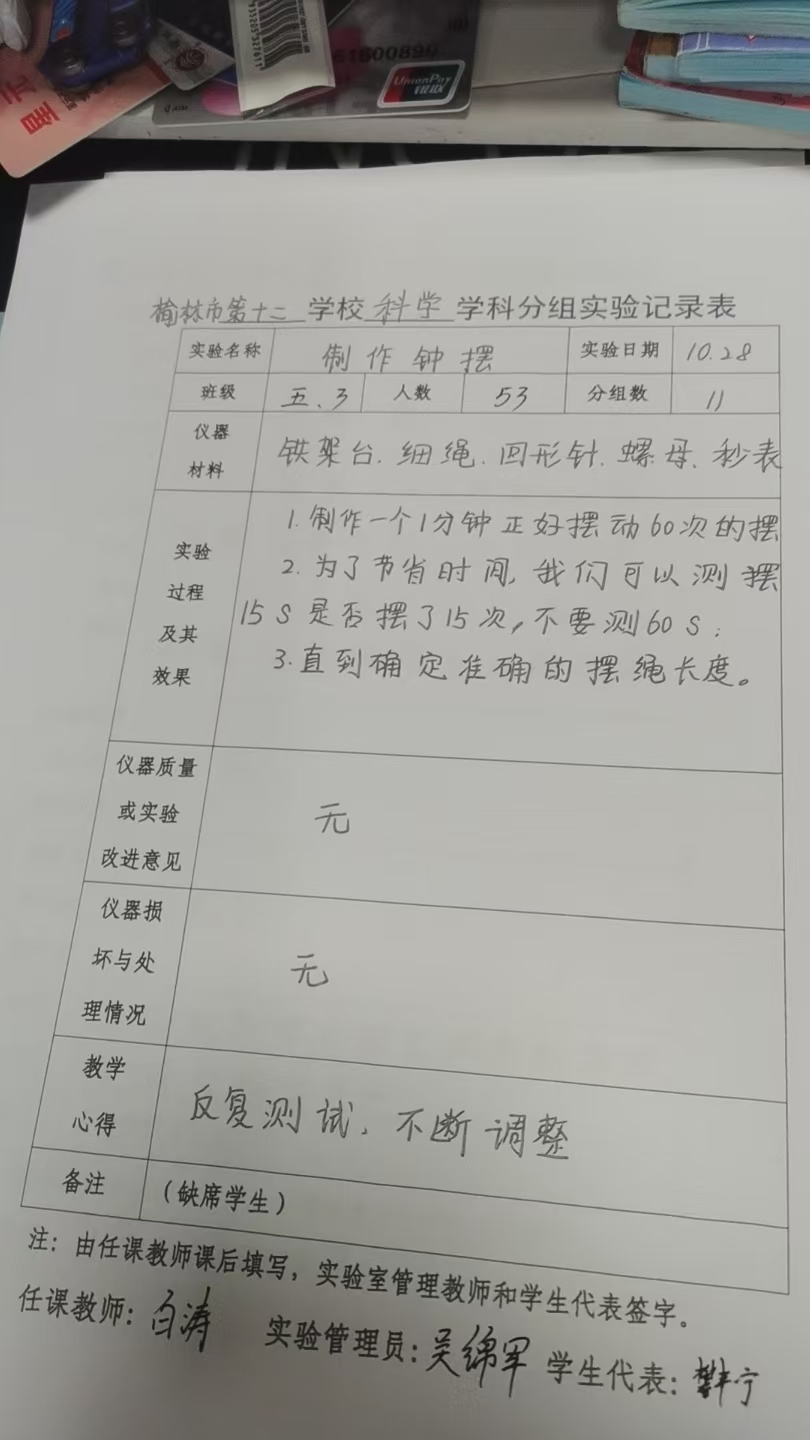 61600890
UnionPay
银联
榆林市第十二 学校 科学 学科分组实验记录表
实验名称 制作钟摆 实验日期 10.28
班级 五.3 人数 53 分组数 11
仪器
材料
铁架台.细绳.回形针.螺母、秒表
实验
过程
及其
效果
1.制作一个1分钟正好摆动60次的摆
2.为了节省时间,我们可以测摆
15S是否摆了15次,不要测60S;
3.直到确定准确的摆绳长度。
仪器质量
或实验
改进意见
无
仪器损
坏与处
理情况
无
教学
心得
反复测试、不断调整
备注 (缺席学生)
注:由任课教师课后填写,实验室管理教师和学生代表签字。
任课教师:白涛 实验管理员:吴绵军 学生代表: